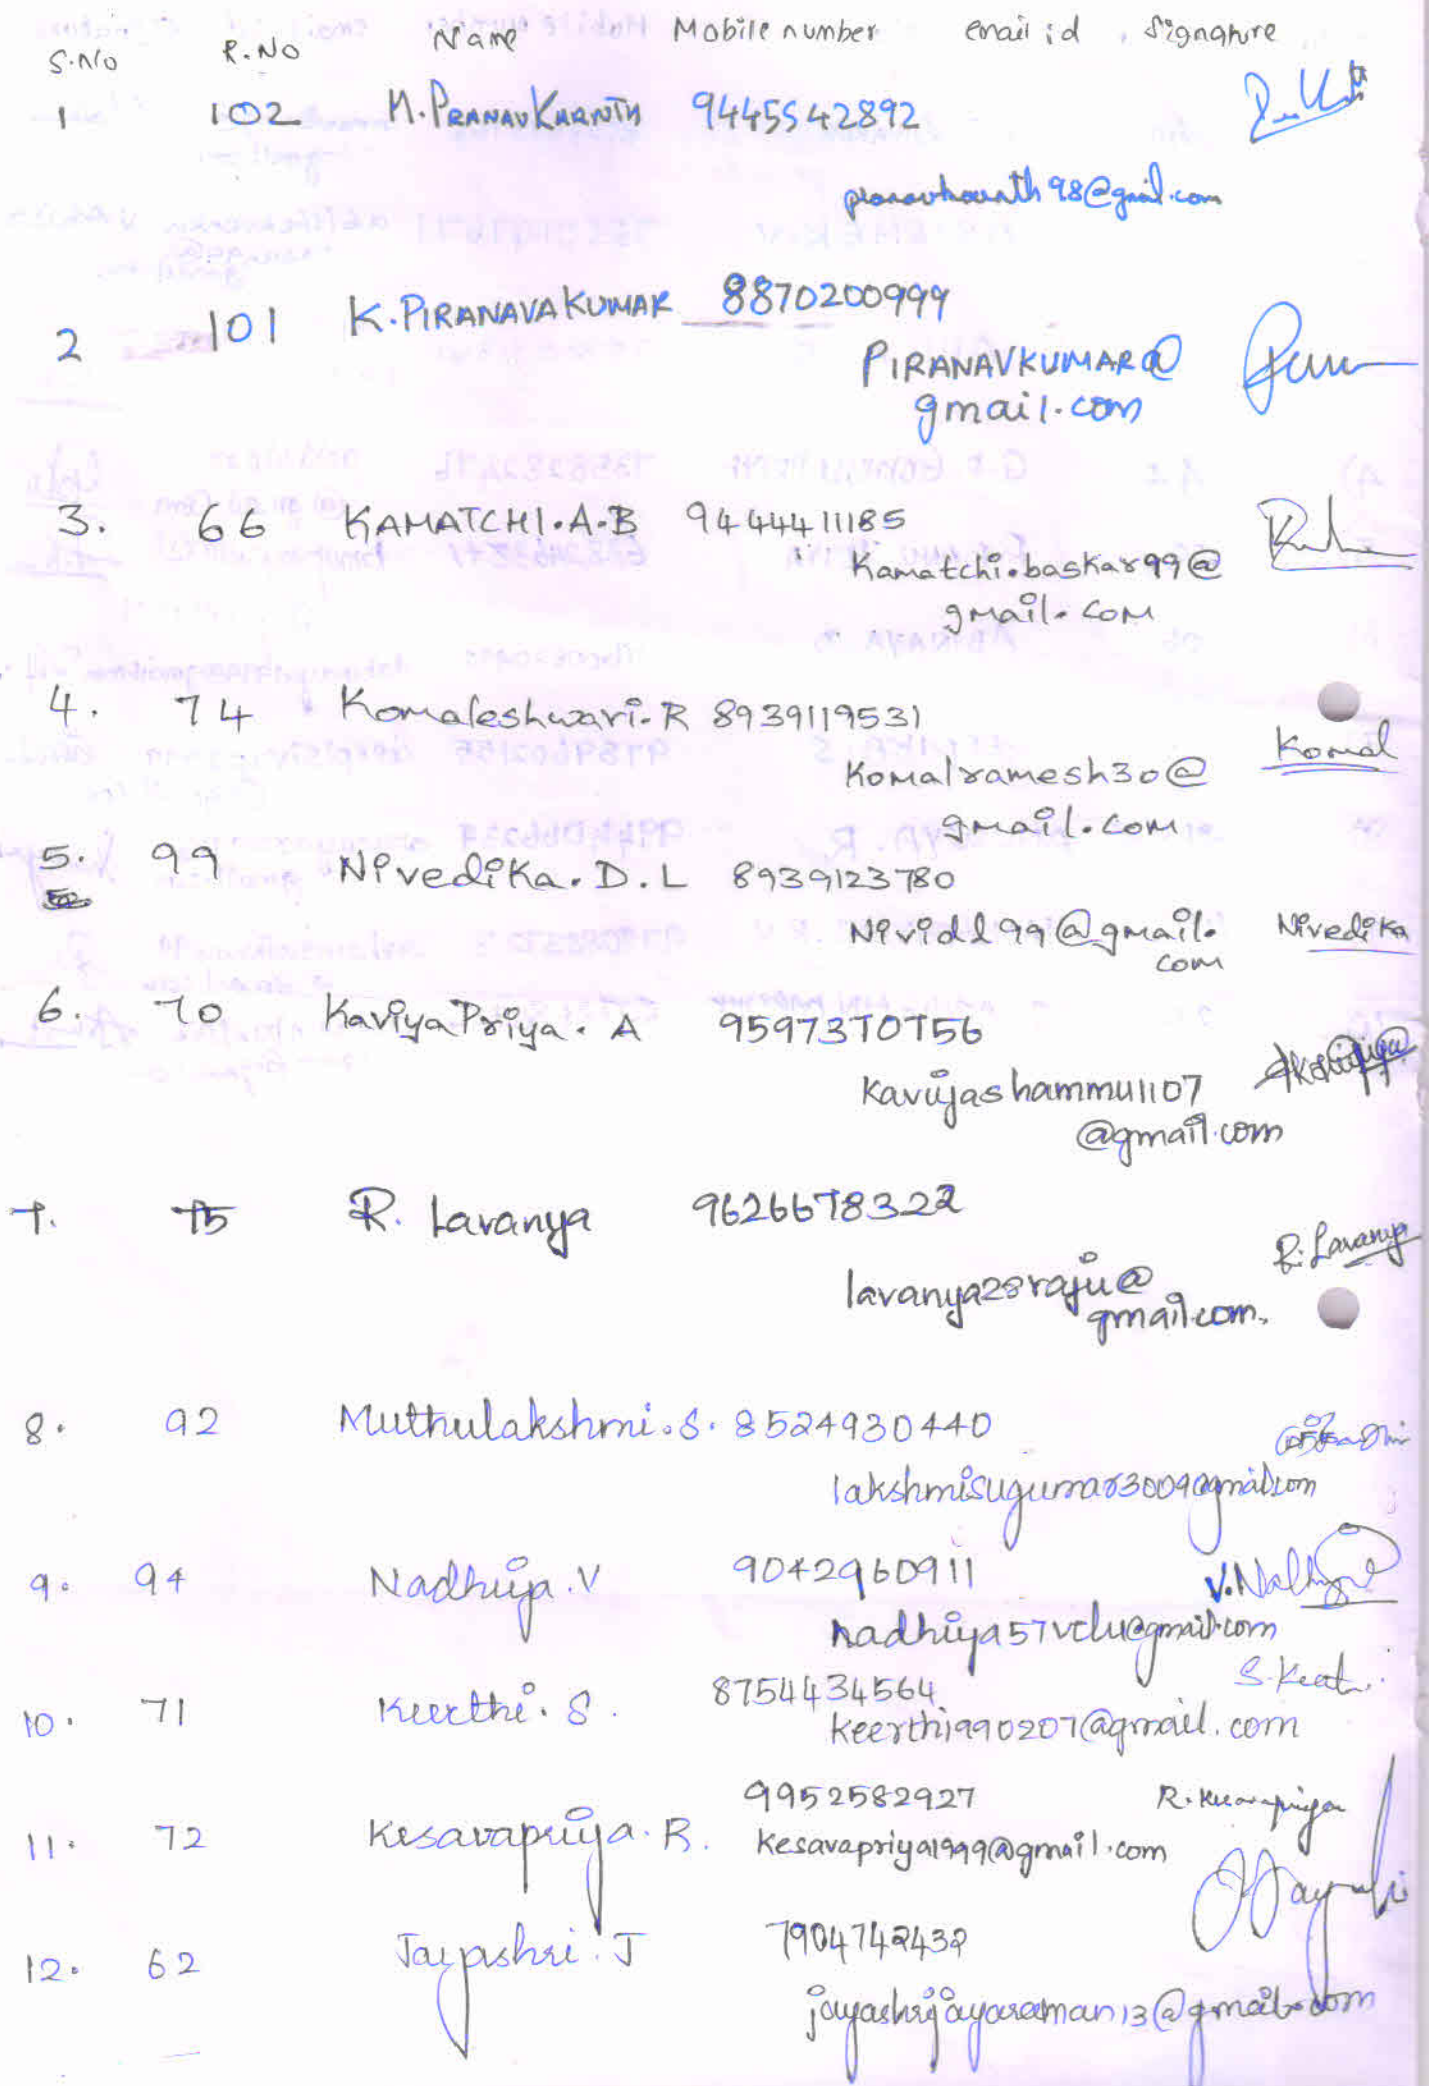 S.No R.No Name Mobile number email id Signature
1 102 M.PRANAV KARNTH 9445542892
pranavkarnth98@gmail.com
2 101 K.PIRANAVAKUMAR 8870200999
PIRANAVKUMAR@
gmail.com
3. 66 KAMATCHI.A.B 9444411185
Kamatchi.baskar99@
gmail.com
4. 74 Komaleshwari.R 8939119531
Komal
Komalramesh30@
gmail.com
5. 99 Nivedika.D.L 8939123780
Nividl99@gmail. Nivedika
com
6. 70 KaviyaPriya. A 9597370756
kaviyashammu1107
@gmail.com
7. 75 R. Lavanya 9626678322
R. Lavanya
lavanya28raju@
gmail.com.
8. 92 Muthulakshmi.S. 8524930440
lakshmisugumar3009@gmail.com
9. 94 Nadhiya.V 9042960911
V.Nadhiya
nadhiya57velu@gmail.com
10. 71 Keerthi. S. 8754434564 S.Keerthi
keerthi990207@gmail.com
9952582927 R.Kesavapriya
11. 72 Kesavapriya. R. Kesavapriya1999@gmail.com
12. 62 Jayashri. J 7904742432
jayashrijayaraman13@gmail.com